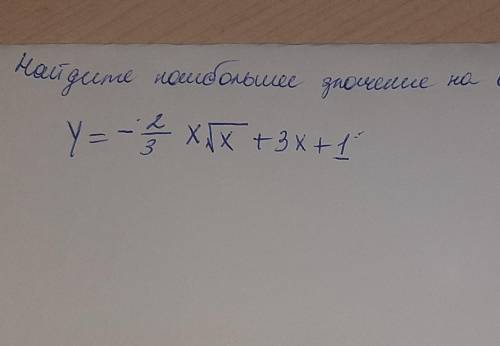 Найдите наибольшее значение на
y = - 2/3 x√x + 3x + 1